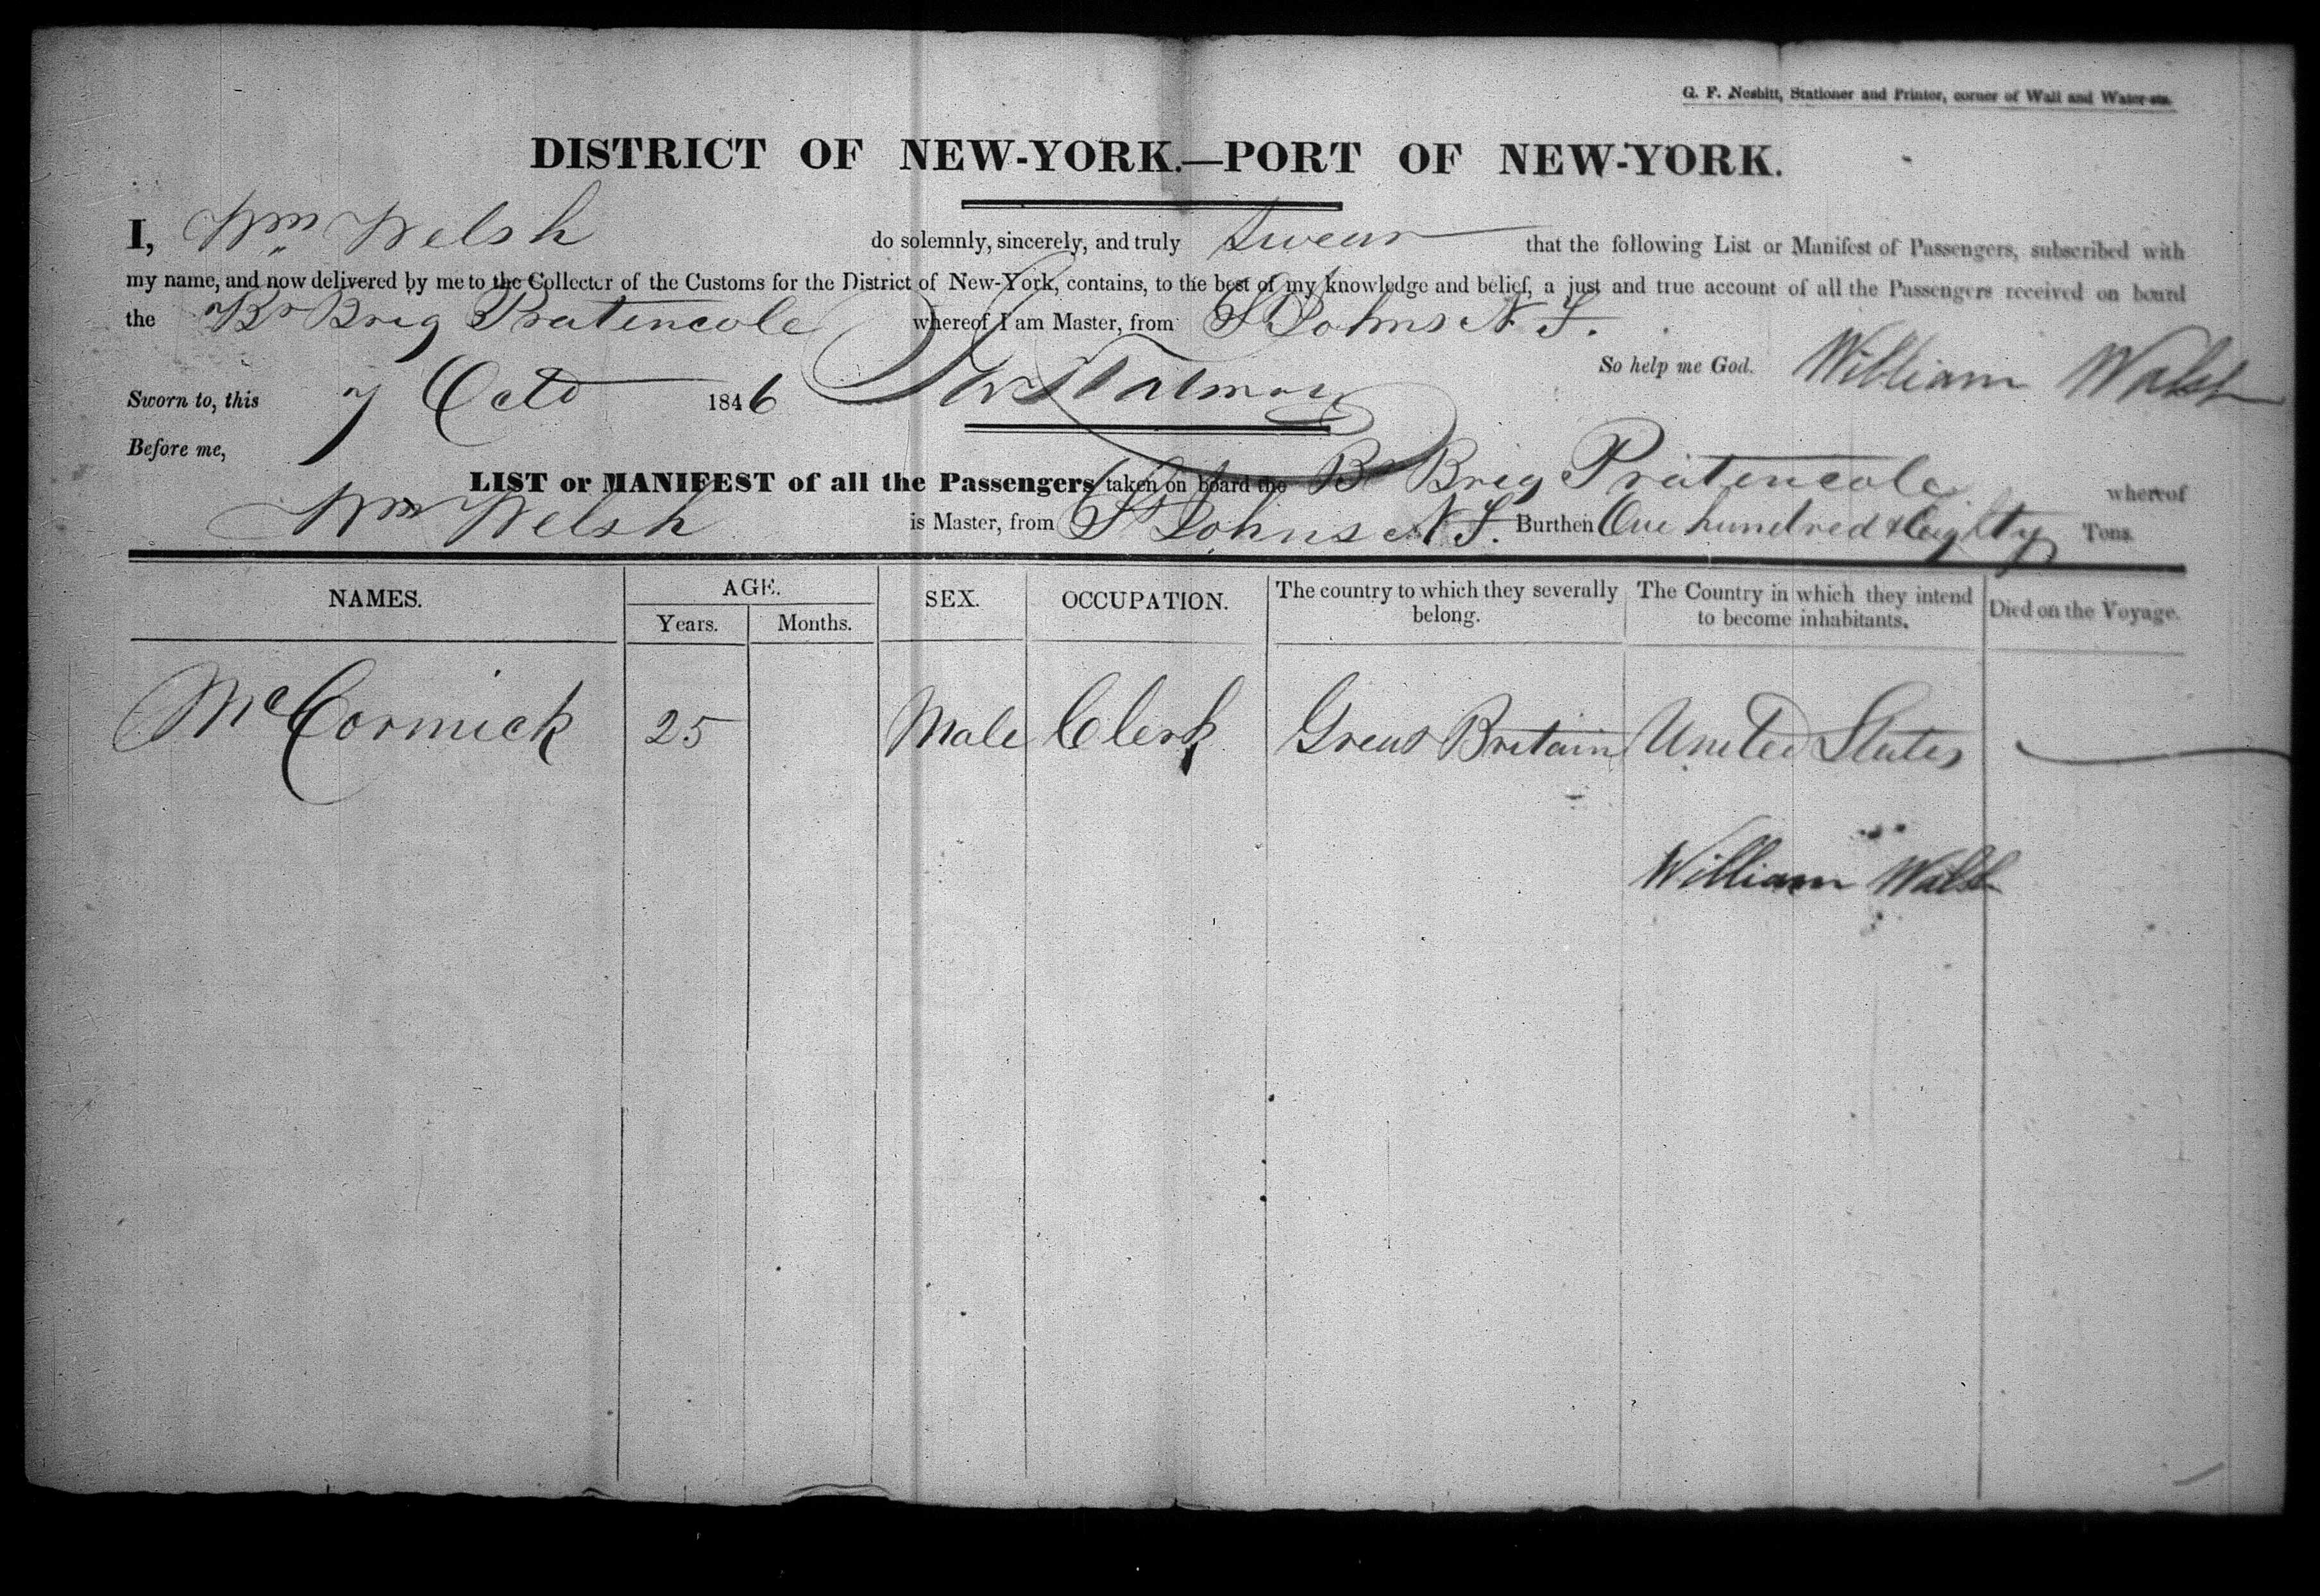 G. F. Nesbitt, Stationer and Printer, corner of Wall and Water-sts.
DISTRICT OF NEW-YORK.—PORT OF NEW-YORK.
I, Wm Welsh do solemnly, sincerely, and truly Swear that the following List or Manifest of Passengers, subscribed with
my name, and now delivered by me to the Collector of the Customs for the District of New-York, contains, to the best of my knowledge and belief, a just and true account of all the Passengers received on board
the Br Brig Pratincole whereof I am Master, from St Johns N F.
So help me God. William Walsh
Sworn to, this 7 Octo 1846
Before me,
LIST or MANIFEST of all the Passengers taken on board the Br Brig Pratincole whereof
Wm Welsh is Master, from St Johns N F. Burthen One hundred & Eighty Tons.
NAMES. AGE. SEX. OCCUPATION. The country to which they severally belong. The Country in which they intend to become inhabitants. Died on the Voyage.
Years. Months.
McCormick 25 Male Clerk Great Britain United States
William Walsh